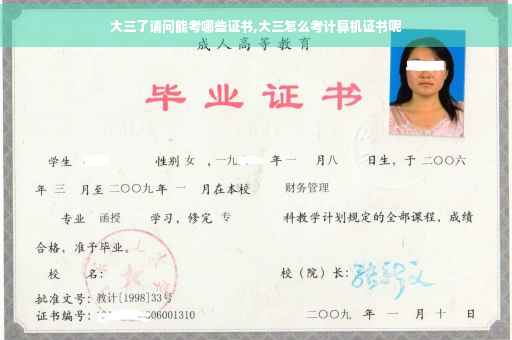 大三了请问能考哪些证书,大三怎么考计算机证书呢
成人高等教育
毕业证书
学生 性别 女 ,一九 年一 月八 日生，于二〇〇六
年 三 月至二〇〇九年 一 月在本校 财务管理
专业 函授 学习，修完 专 科教学计划规定的全部课程，成绩
合格，准予毕业。
校 名： 校（院）长：
批准文号：教计[1998]33号
证书编号： 06001310 二〇〇九 年 一 月 十 日